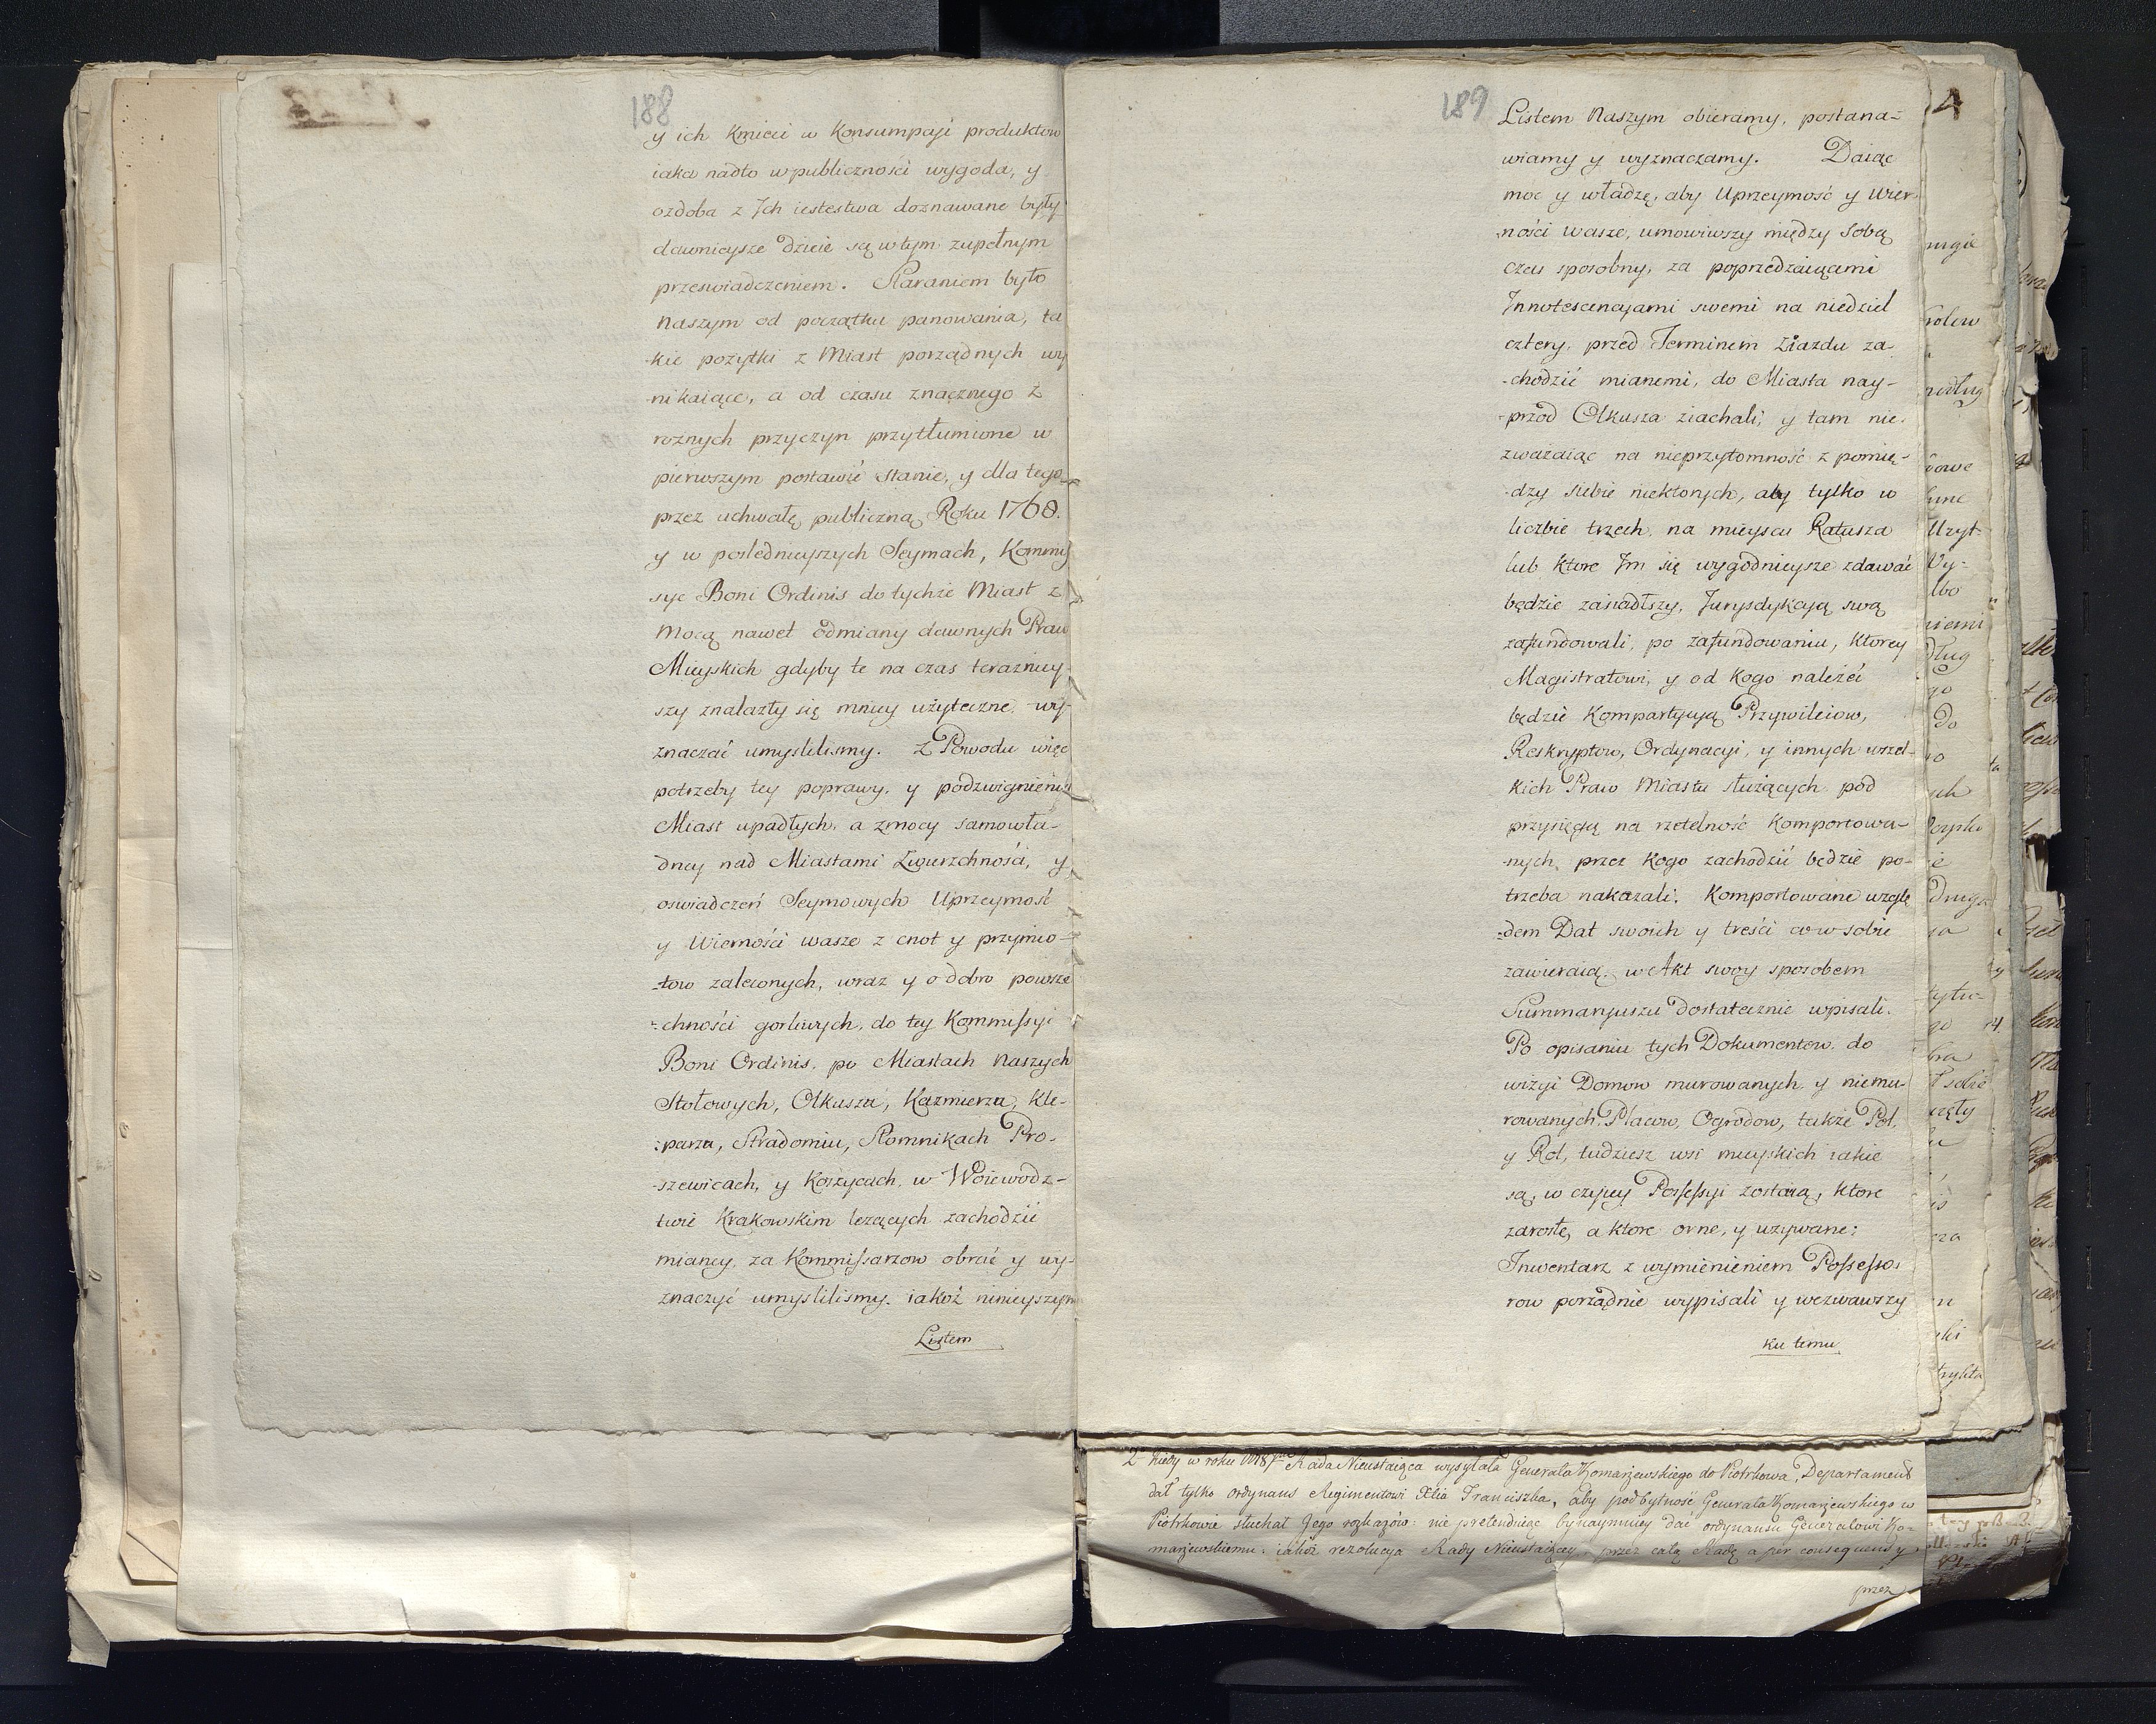 188
y ich Kmieci w Konsumpcyi produktow
iaka nadto w publiczności wygoda, y
ozdoba z Ich iestestwa doznawane były
dawnieysze dzieie są w tym zupełnym
przeswiadczeniem. Staraniem było
Naszym od początku panowania, ta
-kie pożytki z Miast porządnych wy
-nikaiące, a od czasu znacznego z
roznych przyczyn przytłumione w
pierwszym postawić stanie, y dla tego
przez uchwałę publiczną Roku 1768.
y w poslednieyszych Seymach, Kommis
sye Boni Ordinis do tychże Miast z
Mocą nawet odmiany dawnych Praw
Mieyskich gdyby te na czas terazniey
szy znalazły się mniey użyteczne, wy-
znaczać umyslilismy. Z Powodu więc
potrzeby tey poprawy, y podzwignienia
Miast upadłych, a z mocy samowła-
dney nad Miastami Zwierzchności, y
oswiadczeń Seymowych Uprzeymość
y Wierności wasze z cnot y przymio-
-tow zaleconych, wraz y o dobro powsze
-chności gorliwych, do tey Kommissyi
Boni Ordinis, po Miastach Naszych
Stołowych, Olkusza, Kazmierza, Kle-
-parza, Stradomiu, Słomnikach Pro-
-szewicach, y Koszycach, w Woiewodz-
twie Krakowskim leżących zachodzić
mianey, za Kommissarzow obrać y wy-
znaczyć umyslilismy. iakoż ninieyszym
Listem
189
Listem Naszym obieramy, postana-
wiamy y wyznaczamy. Daiąc
moc y władzę, aby Uprzeymość y Wier
ności wasze, umowiwszy między Sobą
czas sposobny, za poprzedzaiącami
Innotescencyami swemi na niedziel
cztery, przed Terminem Ziazdu za-
-chodzić mianemi, do Miasta nay-
-przod Olkusza ziachali, y tam nie
zważaiąc na nieprzytomność z pomię-
-dzy siebie niektorych, aby tylko w
liczbie trzech, na mieyscu Ratusza
lub ktore Im się wygodnieysze zdawać
będzie zasiadłszy, Jurysdykcyą swą
zafundowali, po zafundowaniu, ktorey
Magistratowi, y od kogo należeć
będzie Komportycyą Przywileiow,
Reskryptow, Ordynacyi, y innych wszel-
kich Praw Miastu służących pod
przysięgą na rzetelność Komportowa-
-nych, przez kogo zachodzić będzie po-
trzeba nakazali. Komportowane wzglę
-dem Dat swoich y treści co w sobie
zawieraią, w Akt swoy sposobem
Summaryuszu dostatecznie wpisali.
Po opisaniu tych Dokumentow, do
wizyi Domow murowanych y niemu-
rowanych, Placow, Ogrodow, także Pol,
y Rol, tudziesz wsi mieyskich iakie
są, w czyiey Possessyi zostaią, ktore
zarosłe, a ktore orne, y używane;
Inwentarz z wymienieniem Possesso-
row porządnie wypisali y wezwawszy
ku temu
Kiedy w roku Rada Nieustaiąca wysyłała Generała Komarzewskiego do Piotrkowa, Departament
dał tylko ordynans Regimentowi Franciszka, aby pod bytność Generała Komarzewskiego w
Piotrkowie słuchał Jego rozkazów: nie pretenduiąc bynaymniey dać ordynansu Generałowi Ko-
marzewskiemu: iakoż rezolucya Rady Nieustaiącey, przez całą Radę a per consequens y
przez